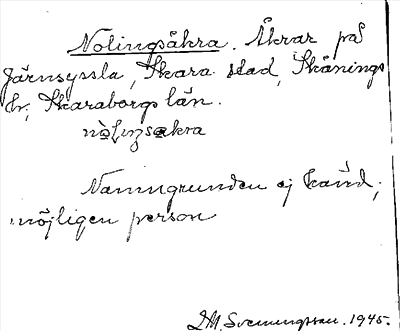 Nolingsåkra. Åkrar på
Järnsyssla, Skara stad, Skånings
hr, Skaraborgs län.
Namngrunden ej känd,
möjligen person
Svenungsson. 1945.